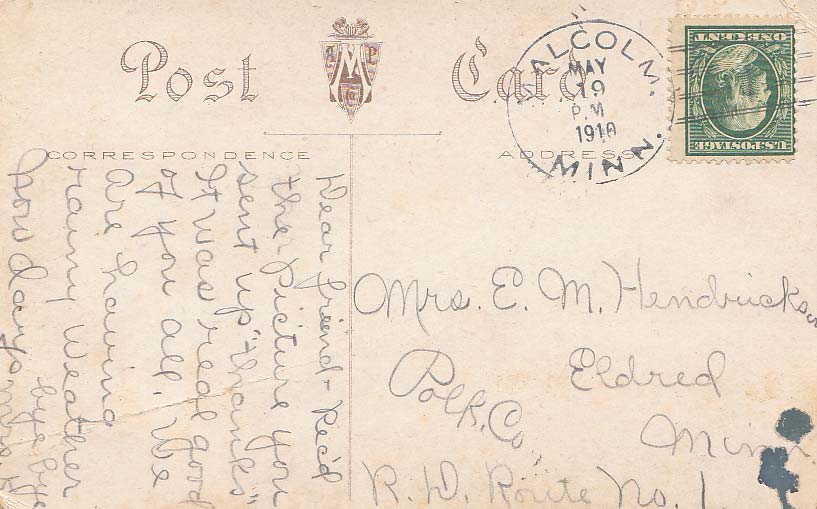 Post Card
CORRESPONDENCE
ADDRESS
MALCOLM.
MAY
19
P.M
1910
MINN.
U.S. POSTAGE
ONE CENT
Dear friend - Rec'd
the picture you
sent up "thanks"
It was real good
of you all. We
are having
rainy weather
bye bye
how
Mrs. E. M. Hendrickson
Eldred
Polk Co,
Minn.
R. D. Route No. 1